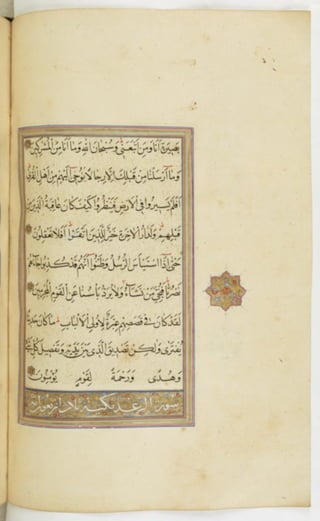 بصيرة انا ومن اتبعنى وسبحان الله وما انا من المشركين
وما ارسلنا من قبلك الا رجالا نوحى اليهم من اهل القرى
افلم يسيروا فى الارض فينظروا كيف كان عاقبة الذين من
قبلهم ولدار الاخرة خير للذين اتقوا افلا تعقلون
حتى اذا استيأس الرسل وظنوا انهم قد كذبوا جاءهم
نصرنا فنجى من نشاء ولا يرد بأسنا عن القوم المجرمين
لقد كان فى قصصهم عبرة لاولى الالباب ما كان حديثا
يفترى ولكن تصديق الذى بين يديه وتفصيل كل شئ
وهدى ورحمة لقوم يؤمنون
سورة الرعد مكية